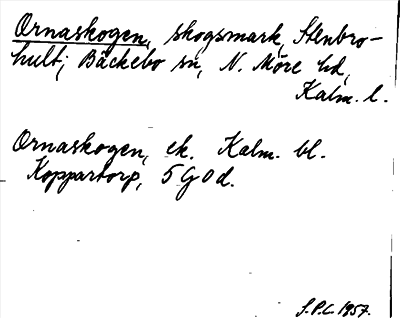 Ornaskogen, skogsmark, Stenbro-
hult; Bäckebo sn, N. Möre hd,
Kalm. l.
Ornaskogen, ek. Kalm. bl.
Koppartorp, 5 G 0 d.
S.P.C. 1957.